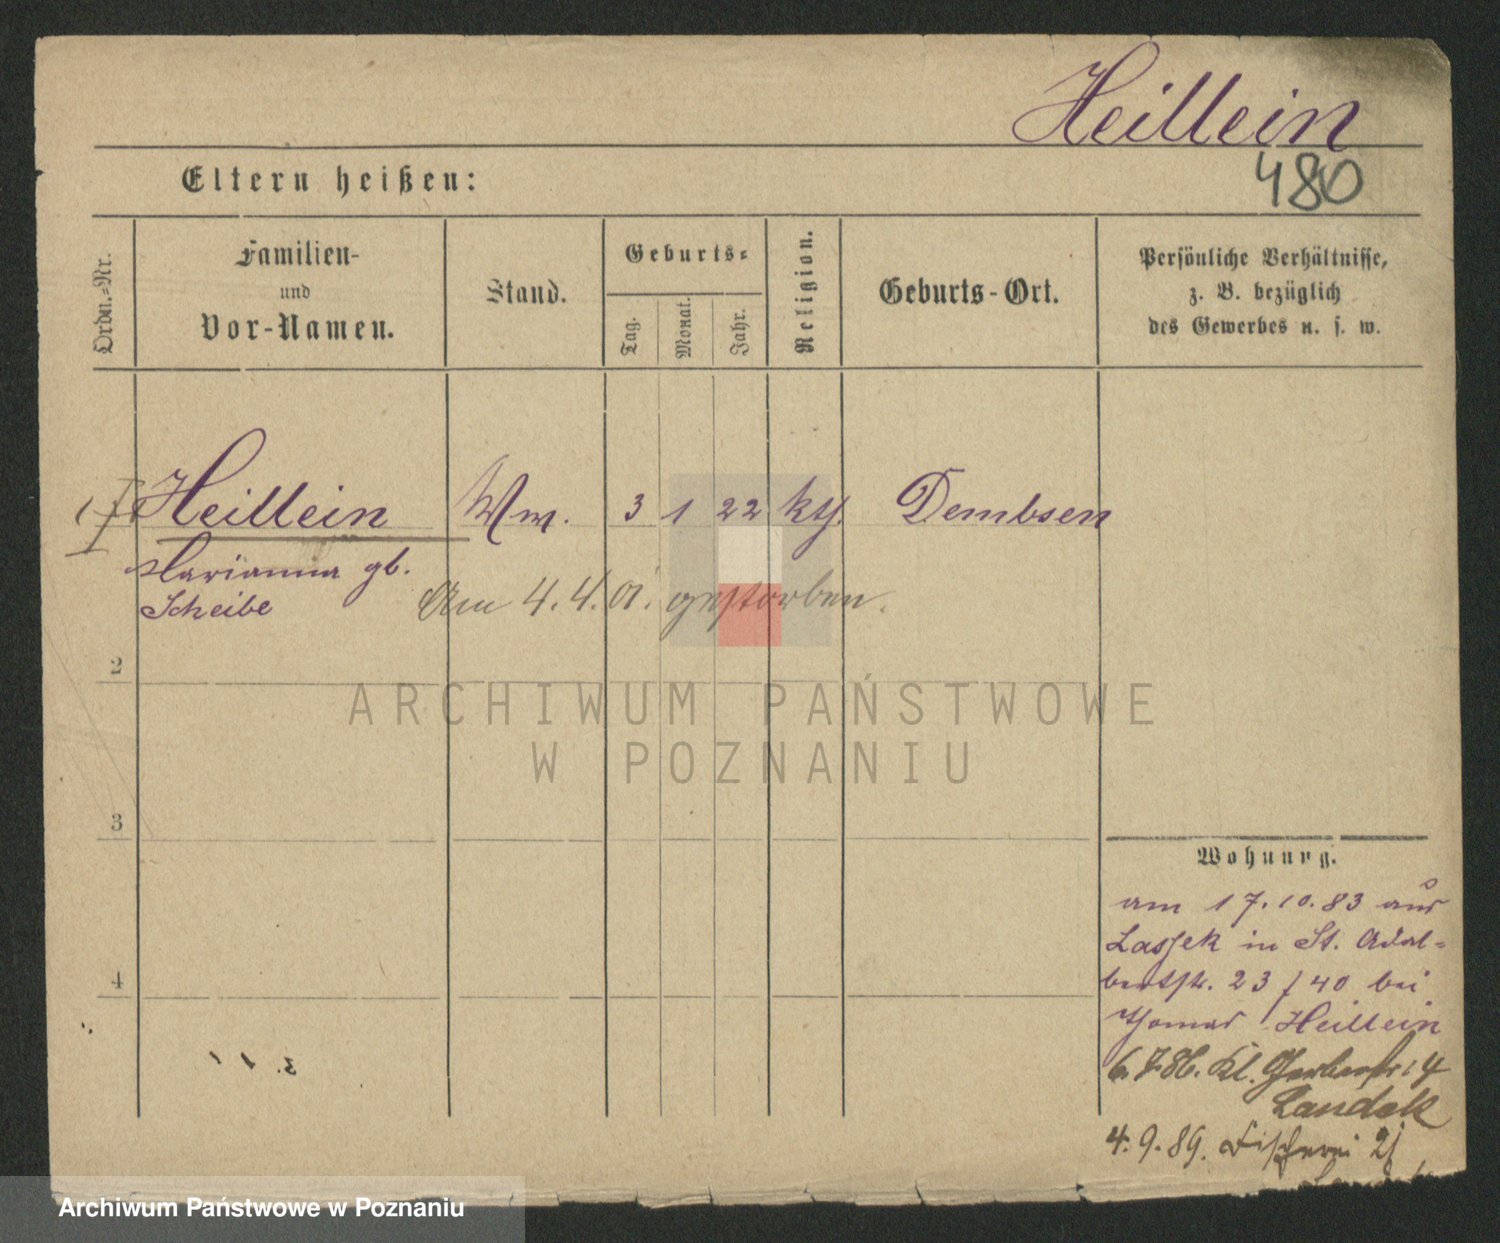 Heillein
480
Eltern heißen:
Ordn.-Nr.
Familien-
und
Vor-Namen.
Stand.
Geburts-
Tag.
Monat.
Jahr.
Religion.
Geburts-Ort.
Persönliche Verhältnisse,
z. B. bezüglich
des Gewerbes u. s. w.
1 Heillein Ww. 3 1 22 kth. Dembsen
Marianna gb.
Scheibe
Am 4.4.01. gestorben.
2
3
4
Wohnung.
am 17.10.83 aus
Lassek in St. Adal-
bertstr. 23/40 bei
Thomas Heillein
6.7.86. Kl. Gerberstr. 4
Landek
4.9.89. Fischerei 21
ARCHIWUM PAŃSTWOWE
W POZNANIU
Archiwum Państwowe w Poznaniu